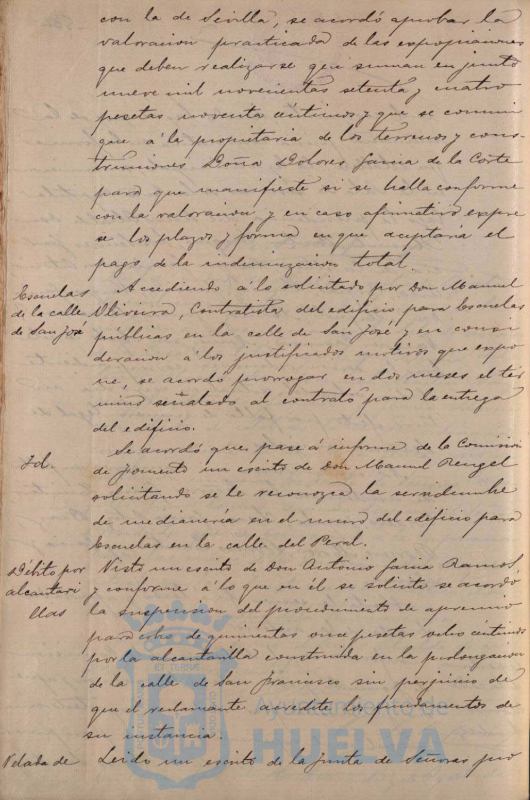 con la de Sevilla, se acordó aprobar la
valoracion practicada de las expropiaciones
que deben realizarse que suman en junto
nueve mil novecientas setenta y cuatro
pesetas noventa céntimos y que se comuni
que á la propietaria de los terrenos y cons-
trucciones Doña Dolores Garcia de la Corte
para que manifieste si se halla conforme
con la valoracion y en caso afirmativo expre
se los plazos y forma en que aceptaria el
pago de la indemnizacion total.
Escuelas
de la calle
de San José
Accediendo á lo solicitado por Don Manuel
Oliveira, Contratista del edificio para Escuelas
públicas en la calle de San José y en consi
deracion á los justificados motivos que expo
ne, se acordó prorrogar en dos meses el tér
mino señalado al contrato para la entrega
del edificio.
Id.
Se acordó que pase á informe de la Comision
de fomento un escrito de Don Manuel Rengel
solicitando se le reconozca la servidumbre
de medianería en el muro del edificio para
Escuelas en la calle del Peral.
Débito por
alcantari
llas
Visto un escrito de Don Antonio Garcia Ramos,
y conforme á lo que en él se solicita se acordó
la suspension del procedimiento de apremio
para cobro de quinientas once pesetas ocho céntimos
por la alcantarilla construida en la prolongacion
de la calle de San Francisco sin perjuicio de
que el reclamante acredite los fundamentos de
su instancia.
Velada de
Leido un escrito de la Junta de Señoras pro
Ayuntamiento de
HUELVA